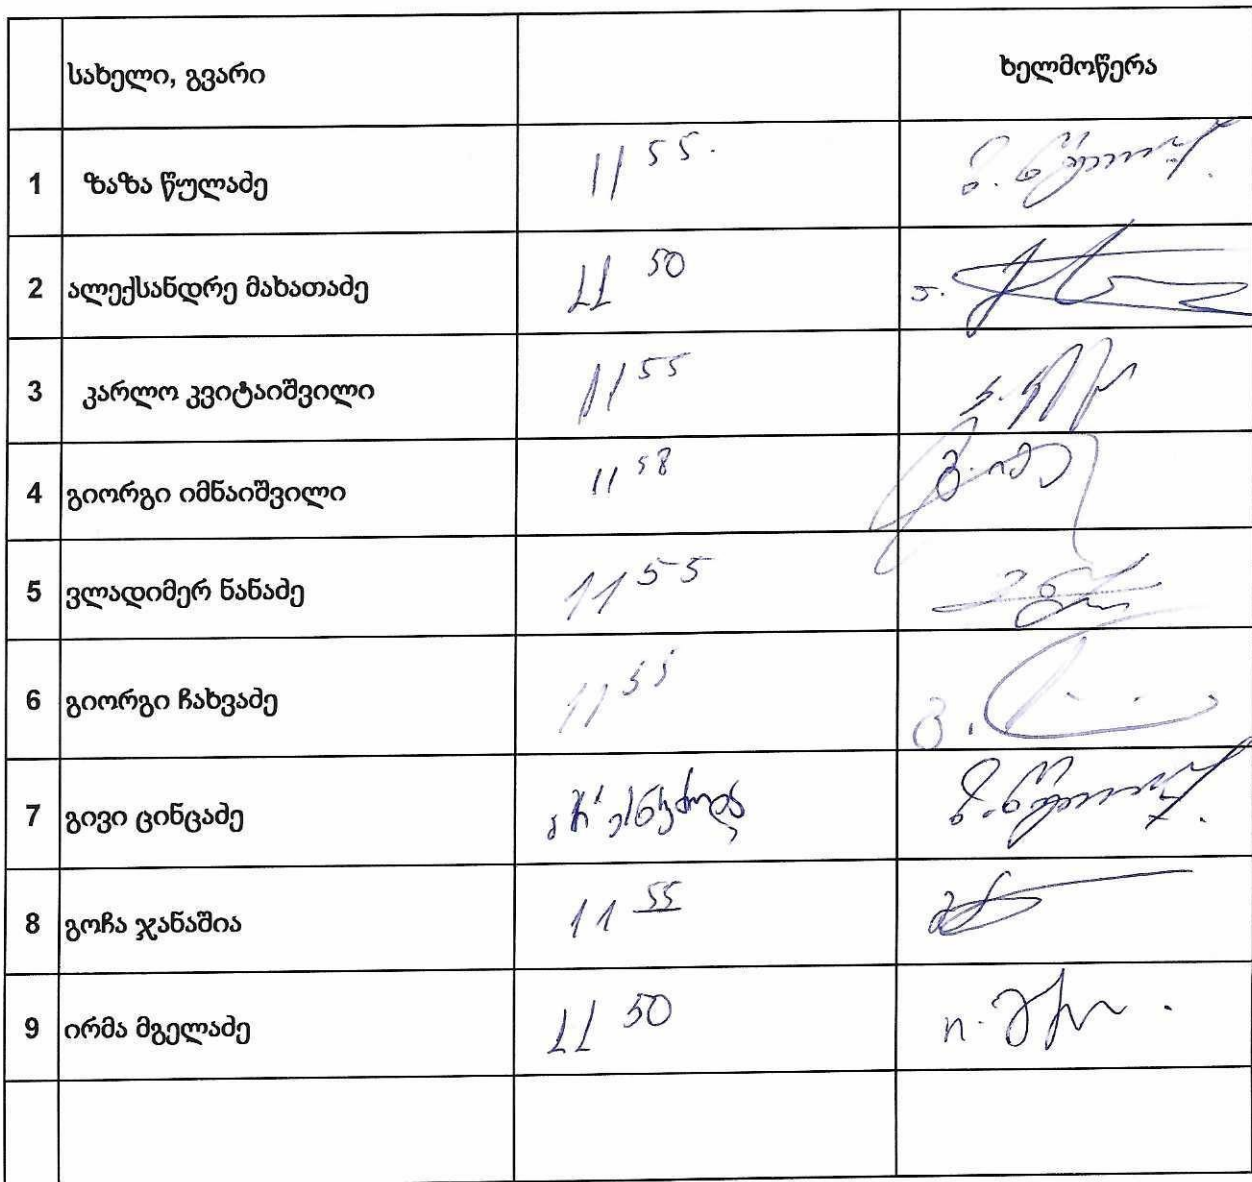 სახელი, გვარი ხელმოწერა
1 ზაზა წულაძე 11 55.
2 ალექსანდრე მახათაძე 11 50
3 კარლო კვიტაიშვილი 11 55
4 გიორგი იმნაიშვილი 11 58
5 ვლადიმერ ნანაძე 11 55
6 გიორგი ჩახვაძე 11 55
7 გივი ცინცაძე არ ესწრებოდა
8 გოჩა ჯანაშია 11 55
9 ირმა მგელაძე 11 50